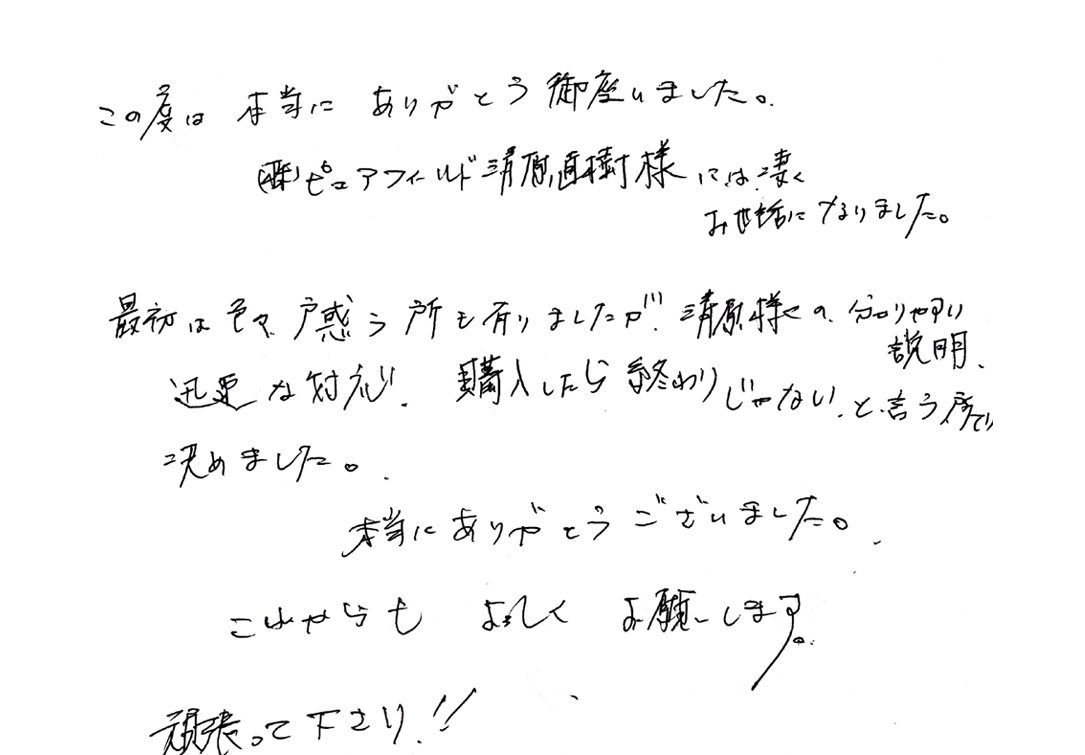 この度は 本当に ありがとう御座いました。
㈱ピュアフィールド清原直樹様には凄く
お世話になりました。
最初は色々戸惑う所も有りましたが、清原様の分かりやすい
説明、
迅速な対応、購入したら終わりじゃない、と言う所で
決めました。
本当にありがとうございました。
これからも よろしく お願いします。
頑張って下さい!!